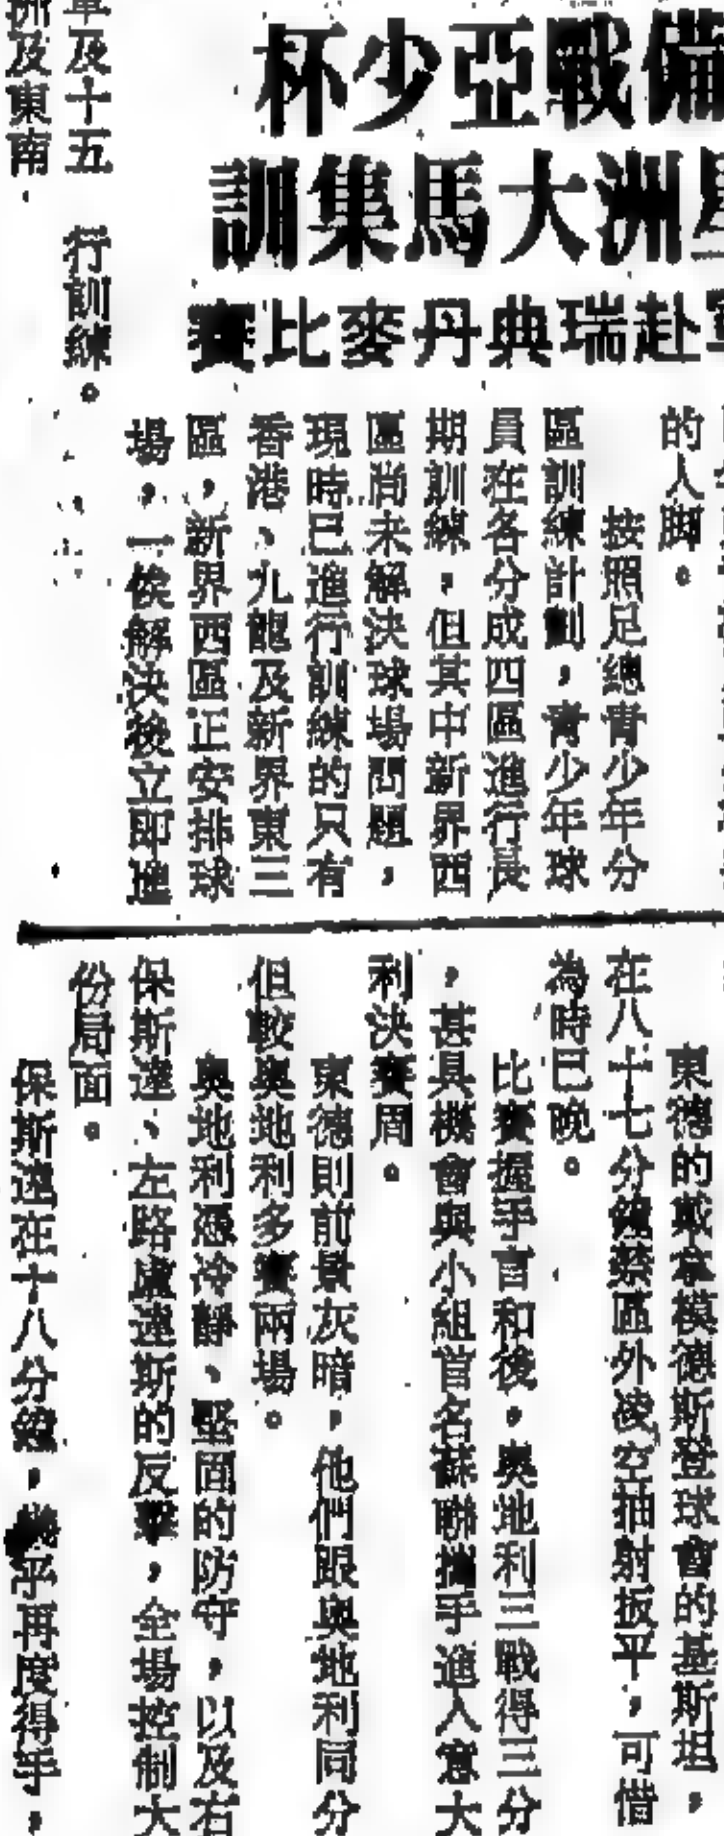 備戰亞少杯
星洲大馬集訓
軍赴瑞典丹麥比賽
的人脚。
按照足總青少年分
區訓練計劃，青少年球
員在各分成四區進行長
期訓練，但其中新界西
區尚未解決球場問題，
現時已進行訓練的只有
香港、九龍及新界東三
區，新界西區正安排球
場，一俟解決後立即進
行訓練。
及十五
洲及東南
東德的戴拿模德斯登球會的基斯坦，
在八十七分鐘禁區外凌空抽射扳平，可惜
為時已晚。
比賽握手言和後，奧地利三戰得三分
，甚具機會與小組首名蘇聯攜手進入意大
利決賽周。
東德則前景灰暗，他們跟奧地利同分
但較奧地利多賽兩場。
奧地利憑冷靜、堅固的防守，以及右
保斯達、左路盧達斯的反擊，全場控制大
份局面。
保斯達在十八分鐘，幾乎再度得手，